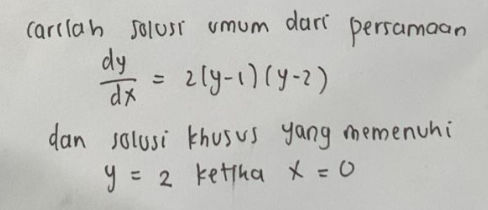 Carilah solusi umum dari persamaan
dy/dx = 2(y-1)(y-2)
dan solusi khusus yang memenuhi
y = 2 ketika x = 0